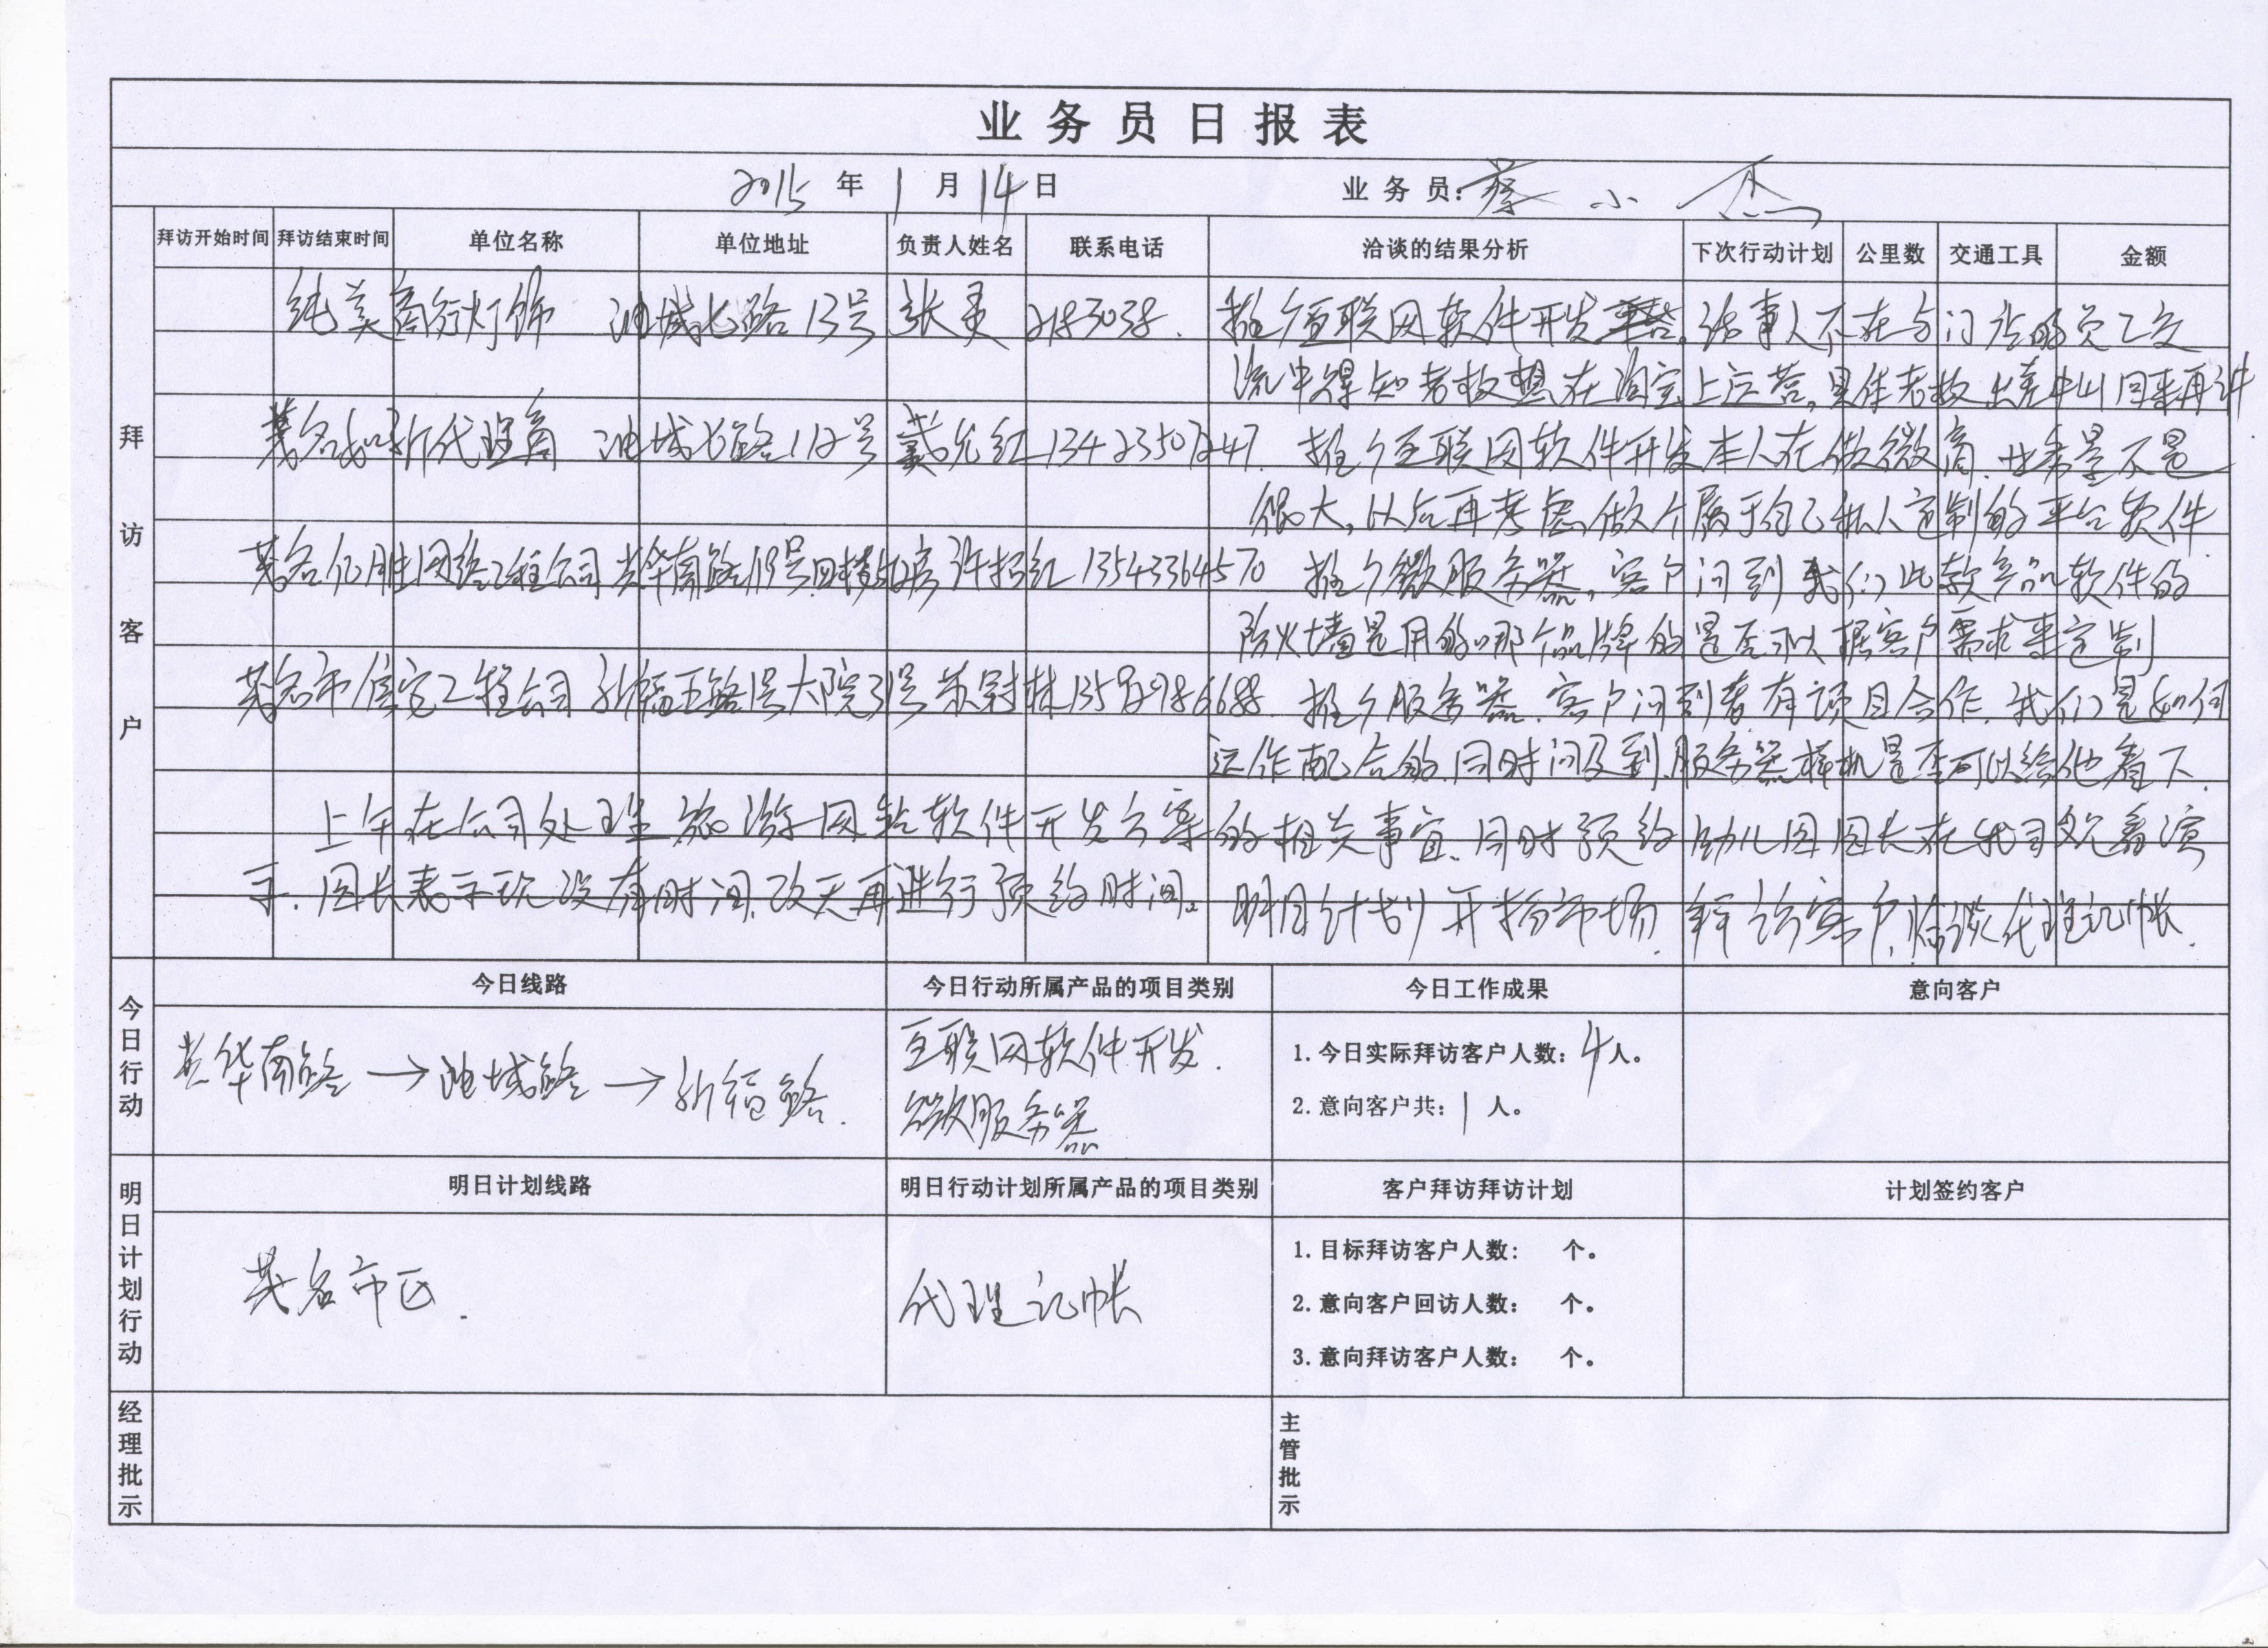 业务员日报表
2015年1月14日 业务员:蔡小杰
拜访开始时间 拜访结束时间 单位名称 单位地址 负责人姓名 联系电话 洽谈的结果分析 下次行动计划 公里数 交通工具 金额
拜访客户
纯美商行灯饰 油城北路13号 张 2183038. 推介互联网软件开发 。该事人不在与门店的员工交
流中得知老板想在淘宝上运营,具体老板出差中山回来再计
茂名如新代理商 油城北路112号 戴光红 13423507247. 推介互联网软件开发本人在做微商.业务量不是
很大,以后再考虑做个属于自己私人定制的平台软件
茂名亿胜网络工程公司 光华南路119号四楼 房 许招红 13543364570 推介微服务器,客户问到我们此款产品软件的
防火墙是用的哪个品牌的是否可以据客户需求来定制
茂名市住宅工程公司 新福五路1号大院31号 苏冠林 13592986688. 推介服务器.客户问到若有项目合作.我们是如何
运作配合的.同时问及到服务器样机是否可以给他看下.
上午在公司处理旅游网站软件开发方案的相关事宜.同时预约幼儿园园长在我司观看演
示.园长表示现没有时间.改天再进行预约时间。明日计划开拓市场.拜访客户,洽谈代理记帐.
今日行动
今日线路 今日行动所属产品的项目类别 今日工作成果 意向客户
光华南路→油城路→新福路.
互联网软件开发.
微服务器
1.今日实际拜访客户人数:4人。
2.意向客户共:1人。
明日计划行动
明日计划线路 明日行动计划所属产品的项目类别 客户拜访拜访计划 计划签约客户
茂名市区.
代理记帐
1.目标拜访客户人数: 个。
2.意向客户回访人数: 个。
3.意向拜访客户人数: 个。
经理批示
主管批示